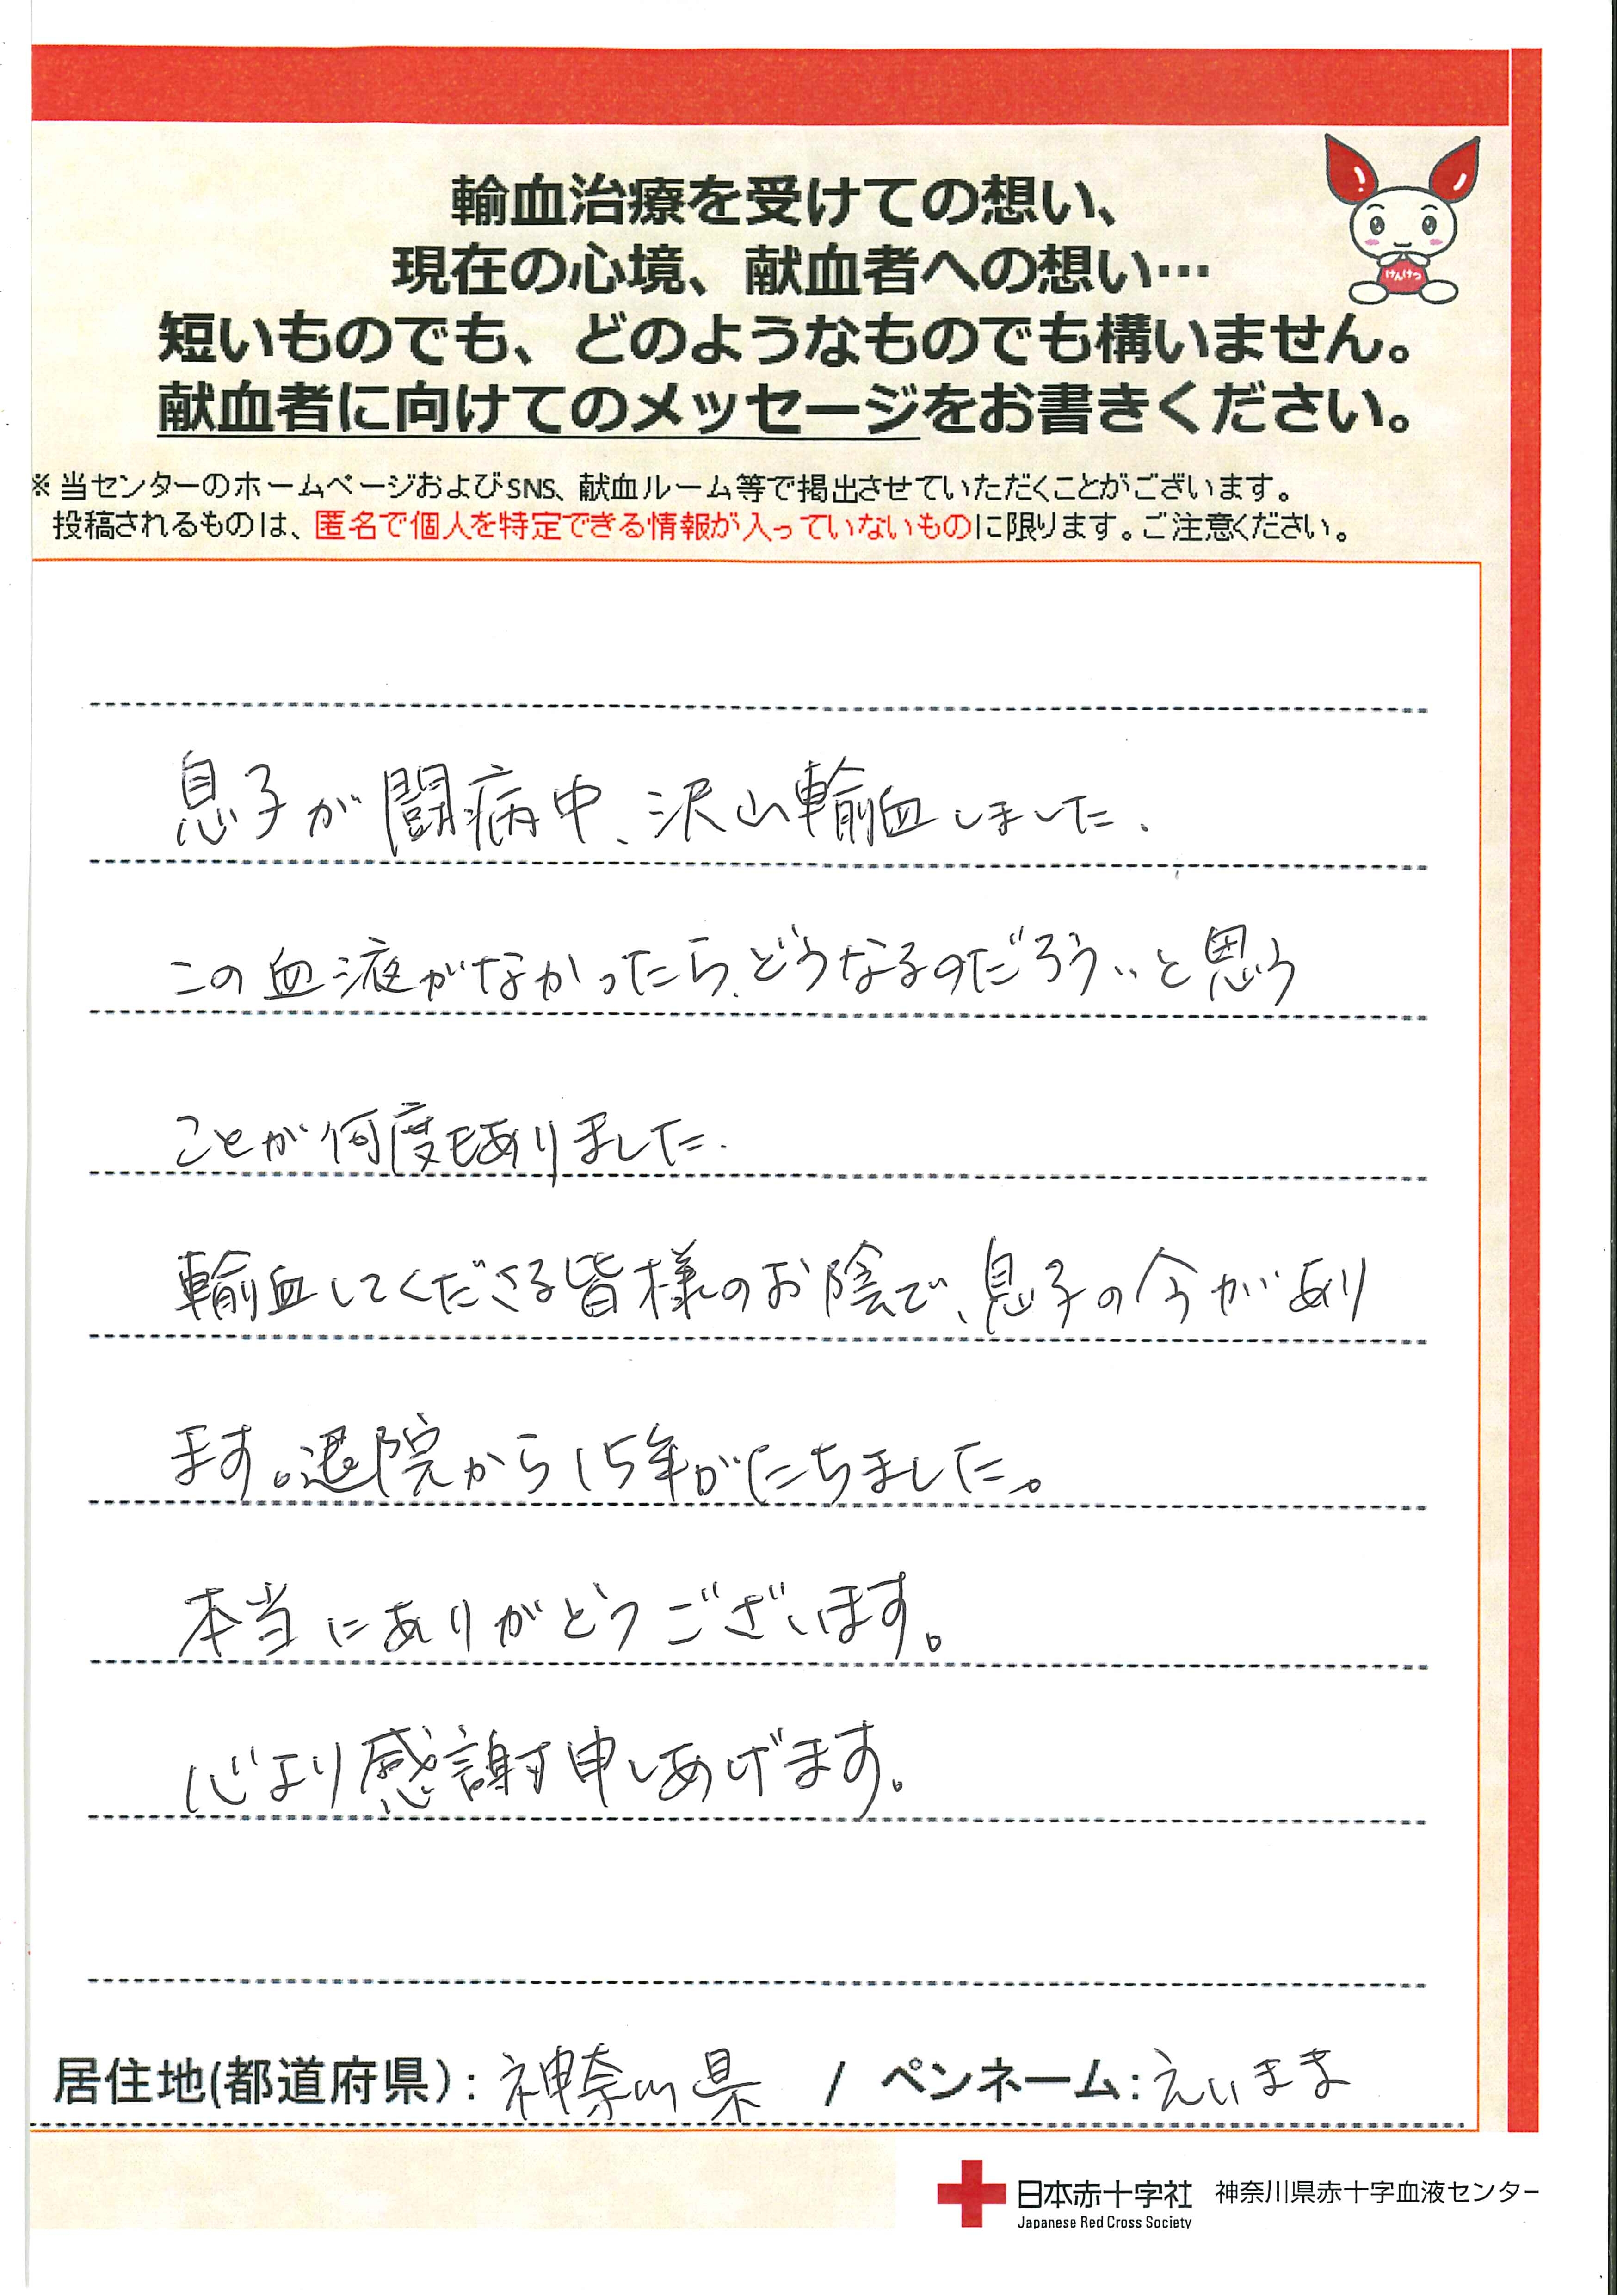 輸血治療を受けての想い、
現在の心境、献血者への想い…
けんけつ
短いものでも、どのようなものでも構いません。
献血者に向けてのメッセージをお書きください。
※当センターのホームページおよびSNS、献血ルーム等で掲出させていただくことがございます。
投稿されるものは、匿名で個人を特定できる情報が入っていないものに限ります。ご注意ください。
息子が闘病中、沢山輸血しました.
この血液がなかったら、どうなるのだろう..と思う
ことが何度もありました.
輸血してくださる皆様のお陰で、息子の今があり
ます。退院から15年がたちました。
本当にありがとうございます。
心より感謝申しあげます。
居住地(都道府県): 神奈川県 / ペンネーム:えいまま
日本赤十字社 神奈川県赤十字血液センター
Japanese Red Cross Society